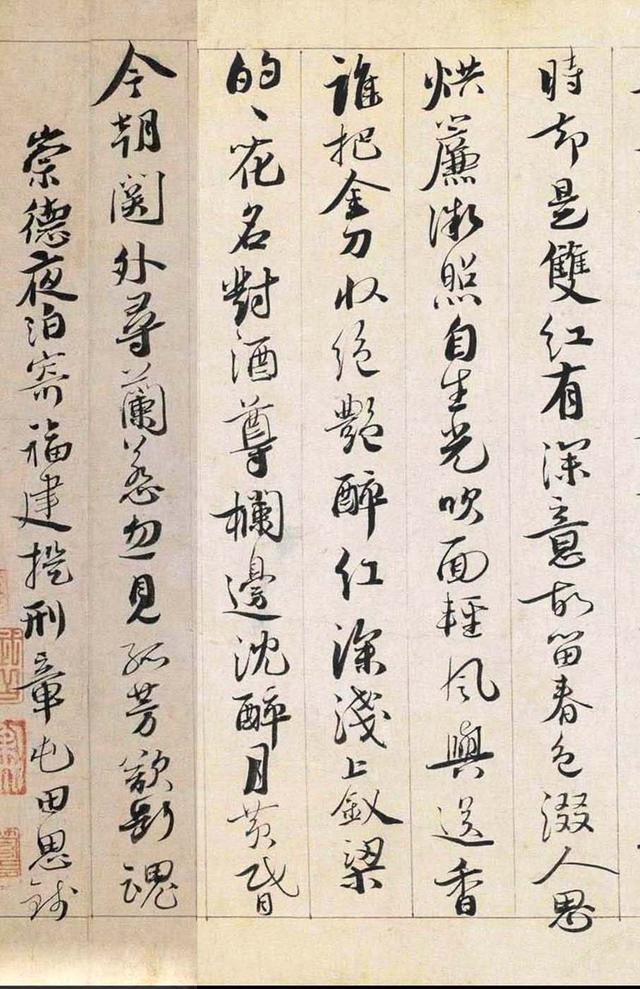 時却是雙紅有深意故留春色綴人思
烘簾微照自生光吹面輕風與送香
誰把金刀收絕艷醉紅深淺上釵梁
的、花名對酒尊欄邊沈醉月黄昏
今朝關外尋蘭蕙忽見孤芳欲斷魂
崇德夜泊寄福建提刑章屯田思錢